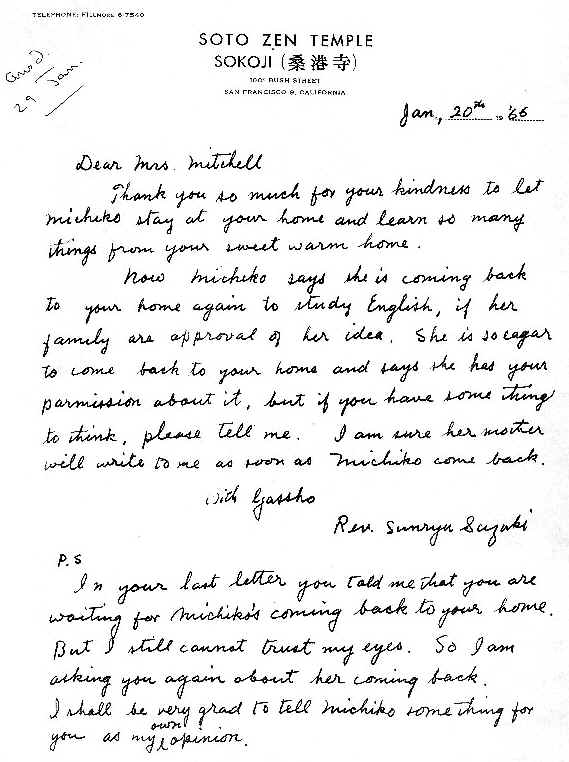 TELEPHONE: FILLMORE 6-7540
ansd.
29 Jan.
SOTO ZEN TEMPLE
SOKOJI (桑港寺)
BUSH STREET
SAN FRANCISCO 9, CALIFORNIA
Jan, 20th, '66
Dear Mrs. Mitchell
Thank you so much for your kindness to let
Michiko stay at your home and learn so many
things from your sweet warm home.
Now Michiko says she is coming back
to your home again to study English, if her
family are approval of her idea. She is so eagar
to come back to your home and says she has your
parmission about it, but if you have some thing
to think, please tell me. I am sure her mother
will write to me as soon as Michiko come back.
With Gassho
Rev. Sunryu Suzuki
P.S
In your last letter you told me that you are
waiting for Michiko's coming back to your home.
But I still cannot trust my eyes. So I am
asking you again about her coming back.
I shall be very grad to tell Michiko some thing for
you as my own opinion.